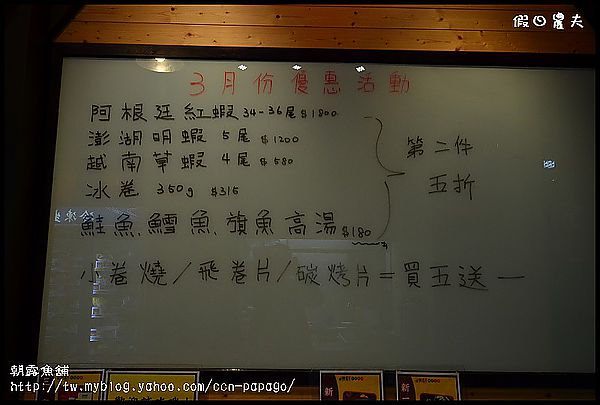 假日農夫
3月份優惠活動
阿根廷紅蝦 34-36尾 $1800
澎湖明蝦 5尾 $1200
越南草蝦 4尾 $580
冰卷 350g $315
鮭魚鱈魚旗魚高湯 $180
第二件
五折
小卷燒/飛卷片/碳烤片=買五送一
朝露魚舖
http://tw.myblog.yahoo.com/ccn-papago/
新
新